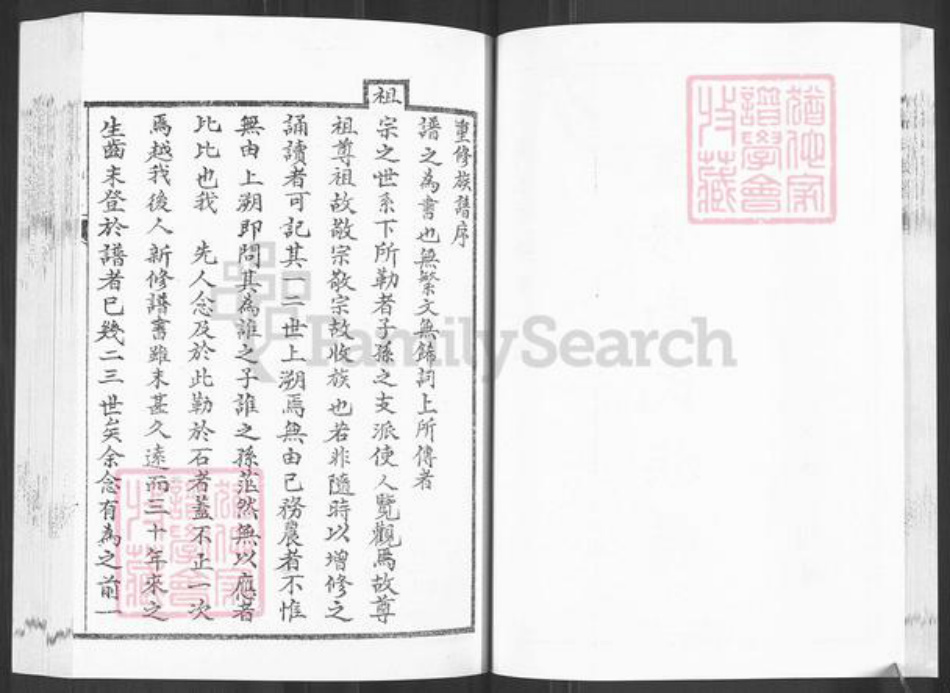 重修族譜序
譜之為書也無繁文無飾詞上所傳者
祖
宗之世系下所勒者子孫之支派使人覽觀焉故尊
祖尊祖故敬宗敬宗故收族也若非隨時以增修之
誦讀者可記其一二世上溯焉無由已務農者不惟
無由上溯即問其為誰之子誰之孫茫然無以應者
比比也我 先人念及於此勒於石者蓋不止一次
焉越我後人新修譜書雖未甚久遠而三十年來之
生齒未登於譜者已幾二三世矣余念有為之前一
譜學會
收藏
FamilySearch